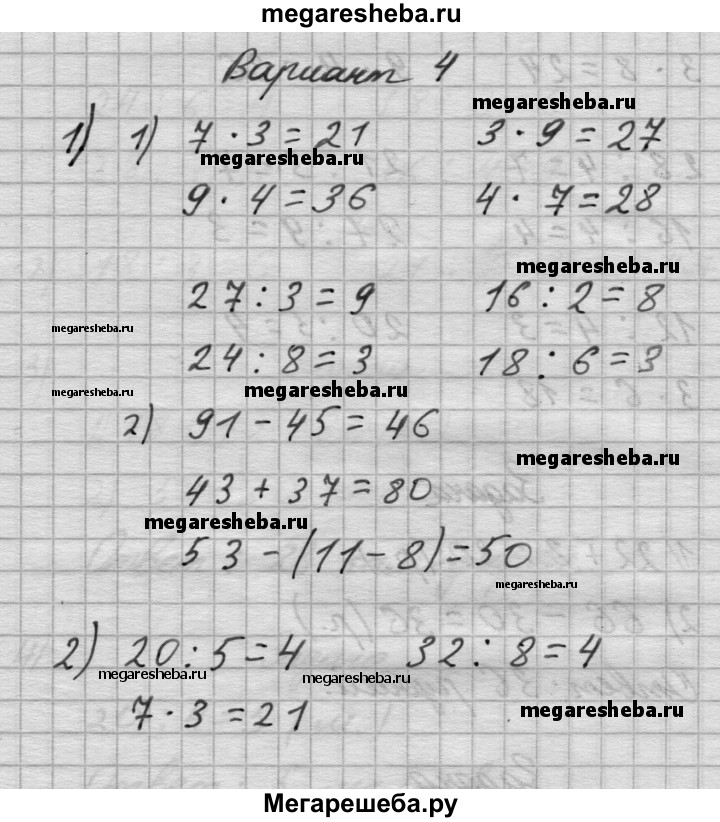 megaresheba.ru
Вариант 4
megaresheba.ru
1) 1) 7 · 3 = 21 3 · 9 = 27
megaresheba.ru
9 · 4 = 36 4 · 7 = 28
megaresheba.ru
27 : 3 = 9 16 : 2 = 8
megaresheba.ru
24 : 8 = 3 18 : 6 = 3
megaresheba.ru megaresheba.ru
2) 91 - 45 = 46
megaresheba.ru
43 + 37 = 80
megaresheba.ru
53 - (11 - 8) = 50
megaresheba.ru
2) 20 : 5 = 4 32 : 8 = 4
megaresheba.ru megaresheba.ru
7 · 3 = 21
megaresheba.ru
Мегарешеба.ру